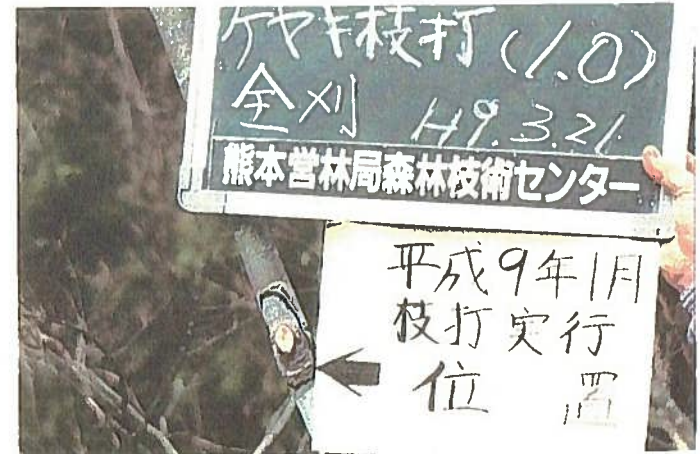 ケヤキ枝打(1.0)
全刈 H9.3.21.
熊本営林局森林技術センター
平成9年1月
枝打実行
位置